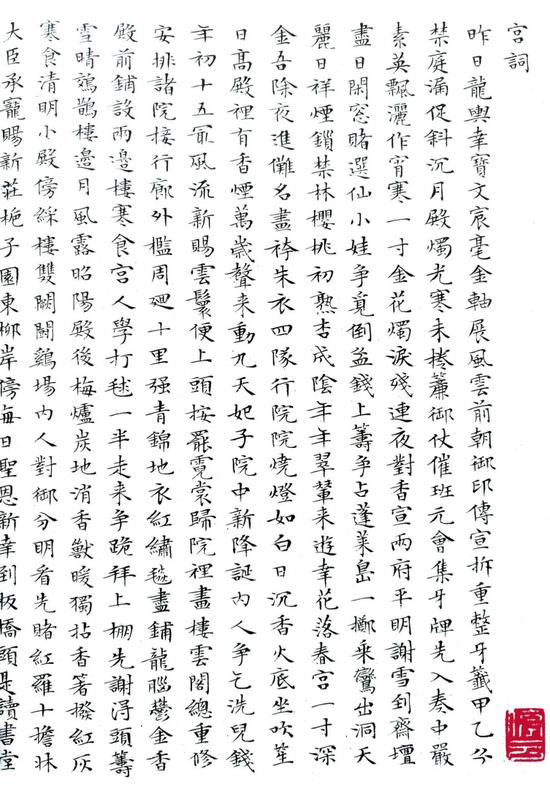 宫詞
昨日龍輿幸寶文宸毫金軸展風雲前朝御印傳宣拆重整牙籤甲乙分
禁庭漏促斜沉月殿燭光寒未捲簾御仗催班元會集牙牌先入奏中嚴
素英飄灑作宵寒一寸金花燭淚殘連夜對香宣兩府平明謝雪到齋壇
盡日閑窓賭選仙小娃争覓倒盆錢上籌争占蓬萊島一擲乘鸞出洞天
麗日祥煙鎖禁林櫻桃初熟杏成陰年年翠輦来遊幸花落春宫一寸深
金吾除夜進儺名畫袴朱衣四隊行院院燒燈如白日沉香火底坐吹笙
日髙殿裡有香煙萬歳聲来動九天妃子院中新降誕内人争乞洗兒錢
年初十五冣風流新賜雲鬟便上頭按罷霓裳歸院裡畫樓雲閣總重修
安排諸院接行廊外檻周廻十里强青錦地衣紅繡毯盡鋪龍腦鬱金香
殿前鋪設兩邊樓寒食宫人學打毬一半走来争跪拜上棚先謝淂頭籌
雪晴鳷鵲樓邊月風露昭陽殿後梅爐炭地消香獸暖獨拈香箸撥紅灰
寒食清明小殿傍綵樓雙闕鬪鷄場内人對御分明看先賭紅羅十擔牀
大臣承寵賜新莊梔子園東柳岸傍每日聖恩新幸到板橋頭是讀書堂